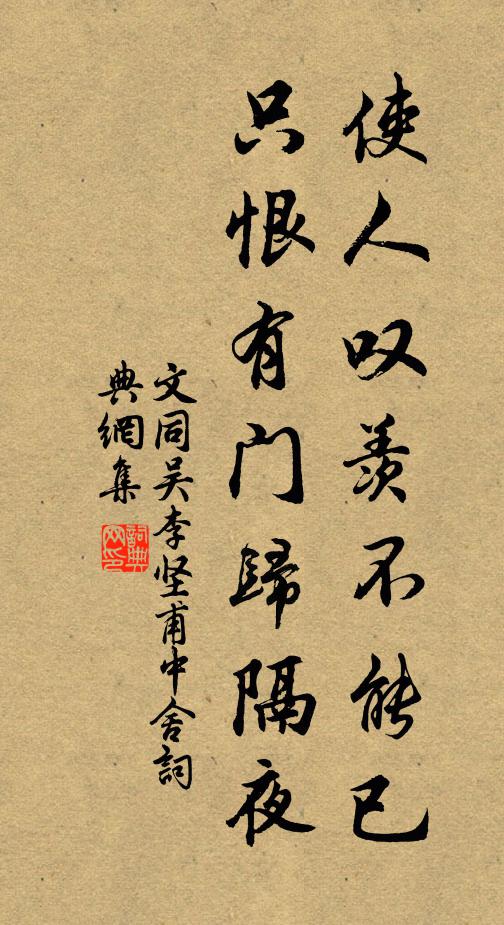 使人叹羡不能已
只恨有门歸隔夜
文同吴李坚甫中舍詞
典網集
詞典網印